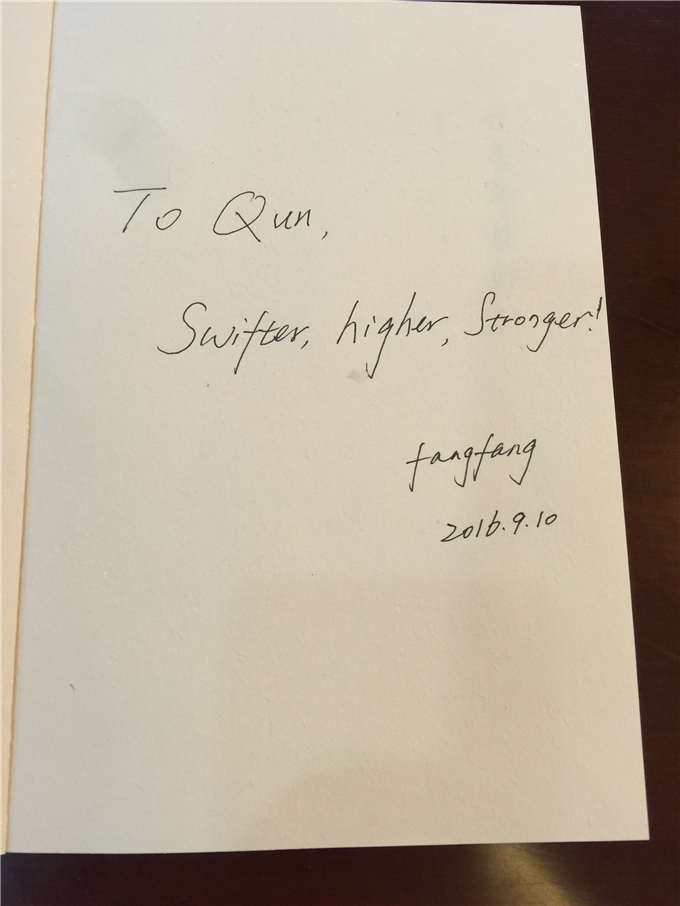 To Qun,
Swifter, higher, Stronger!
fangfang
2016.9.10